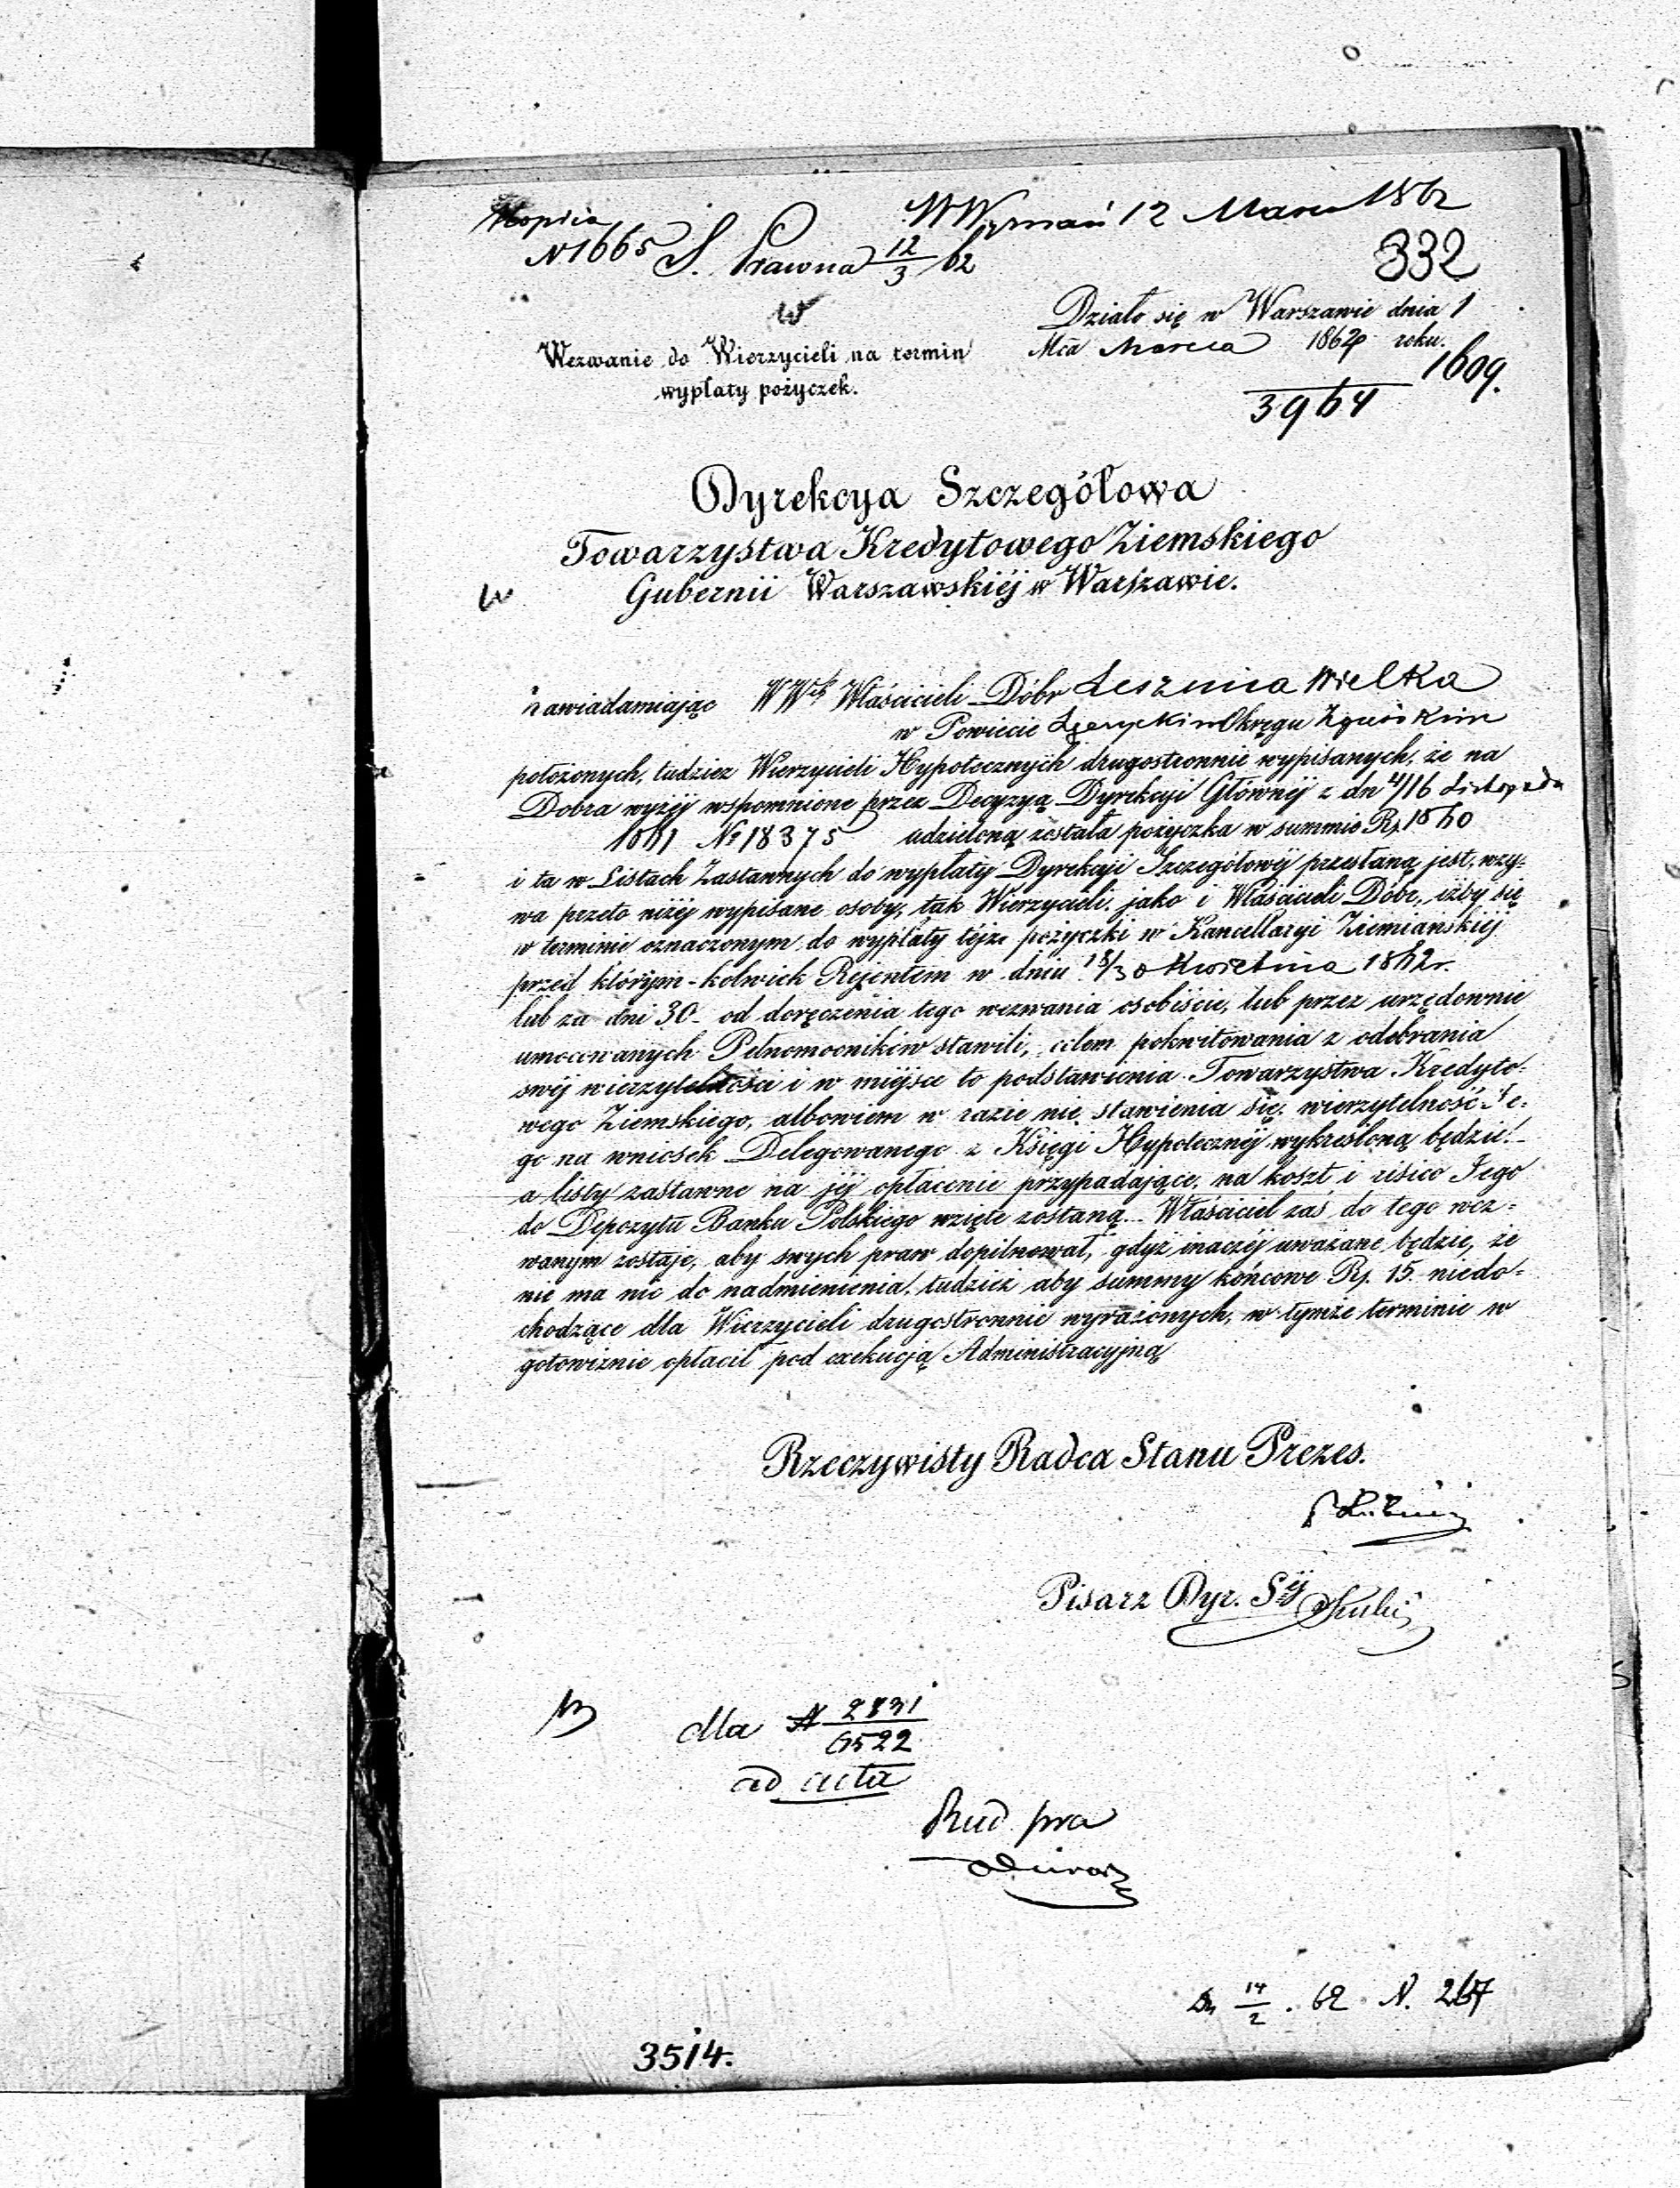 Kopia
N 1665 S. Prawna 12/3 62
12 Marca 1862
332
Działo się w Warszawie dnia 1
Mca Marca 1862 roku.
1609.
3964
Wezwanie do Wierzycieli na termin
wypłaty pożyczek.
Dyrekcya Szczegółowa
Towarzystwa Kredytowego Ziemskiego
Gubernii Warszawskiéj w Warszawie.
Zawiadamiając WWch Właścicieli Dóbr Leszmia Wielka
w Powiecie Łęczyckim Okręgu Zgierskim
położonych, tudzież Wierzycieli Hypotecznych drugostronnie wypisanych, że na
Dobra wyżéj wspomnione przez Decyzyą Dyrekcyi Głównéj z dn 4/16 Listopada
1861 No 18375 udzieloną została pożyczka w summie Rs. 1560
i ta w Listach Zastawnych do wypłaty Dyrekcyi Szczegółowéj przesłaną jest, wzy-
wa przeto niżéj wypisane osoby, tak Wierzycieli jako i Właścicieli Dóbr, iżby się
w terminie oznaczonym do wypłaty téjże pożyczki w Kancellaryi Ziemiańskiéj
przed którym-kolwiek Rejentem w dniu 18/30 Kwietnia 1862 r.
lub za dni 30 od doręczenia tego wezwania osobiście, lub przez urzędownie
umocowanych Pełnomocników stawili, celem pokwitowania z odebrania
swéj wierzytelności i w miéjsce to podstawienia Towarzystwa Kredyto-
wego Ziemskiego, albowiem w razie nie stawienia się, wierzytelność Je-
go na wniosek Delegowanego z Księgi Hypotecznéj wykreśloną będzie,
a listy zastawne na jéj opłacenie przypadające, na koszt i risico Jego
do Depozytu Banku Polskiego wzięte zostaną. Właściciel zaś do tego wez-
wanym zostaje, aby swych praw dopilnował, gdyż inaczéj uważane będzie, że
nie ma nic do nadmienienia, tudzież aby summy końcowe Rs. 15 niedo-
chodzące dla Wierzycieli drugostronnie wyrażonych, w tymże terminie w
gotowiznie opłacił pod exekucją Administracyjną
Rzeczywisty Radca Stanu Prezes.
Pisarz Dyr. Séj
dla N 2831
6522
ad acta
14/2 . 62 N. 267
3514.